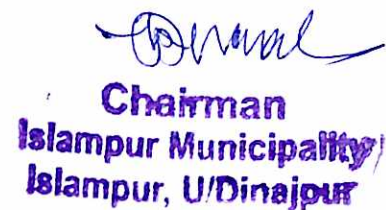 Chairman
Islampur Municipality
Islampur, U/Dinajpur